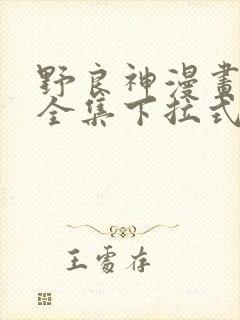 野良神漫畫
全集下拉式
王雪存